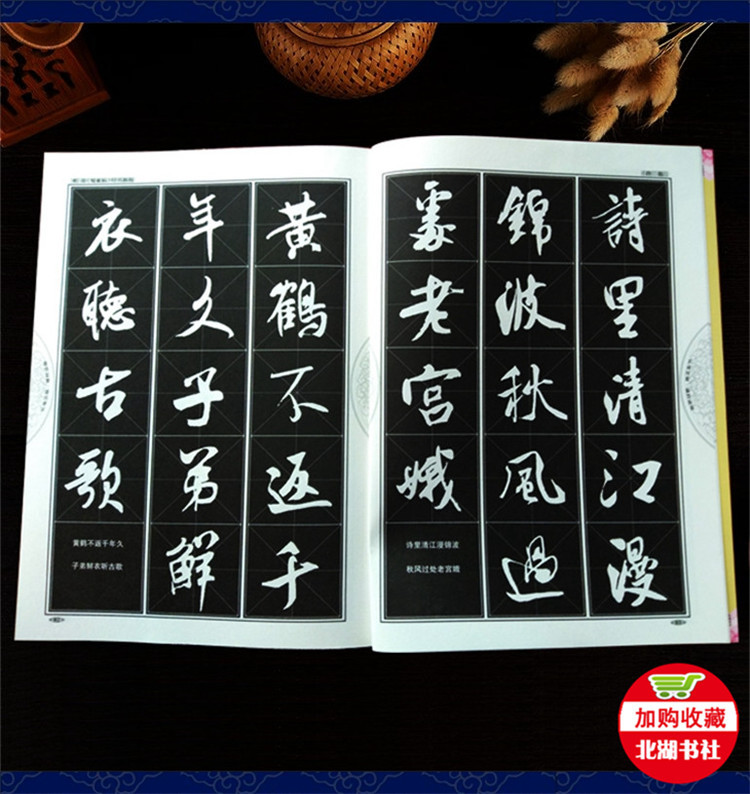 詩里清江漫
錦波秋風過
處老宮娥
诗里清江漫锦波
秋风过处老宫娥
黄鶴不返千
年久子弟鮮
衣聽古歌
黄鹤不返千年久
子弟鲜衣听古歌
加购收藏
北湖书社